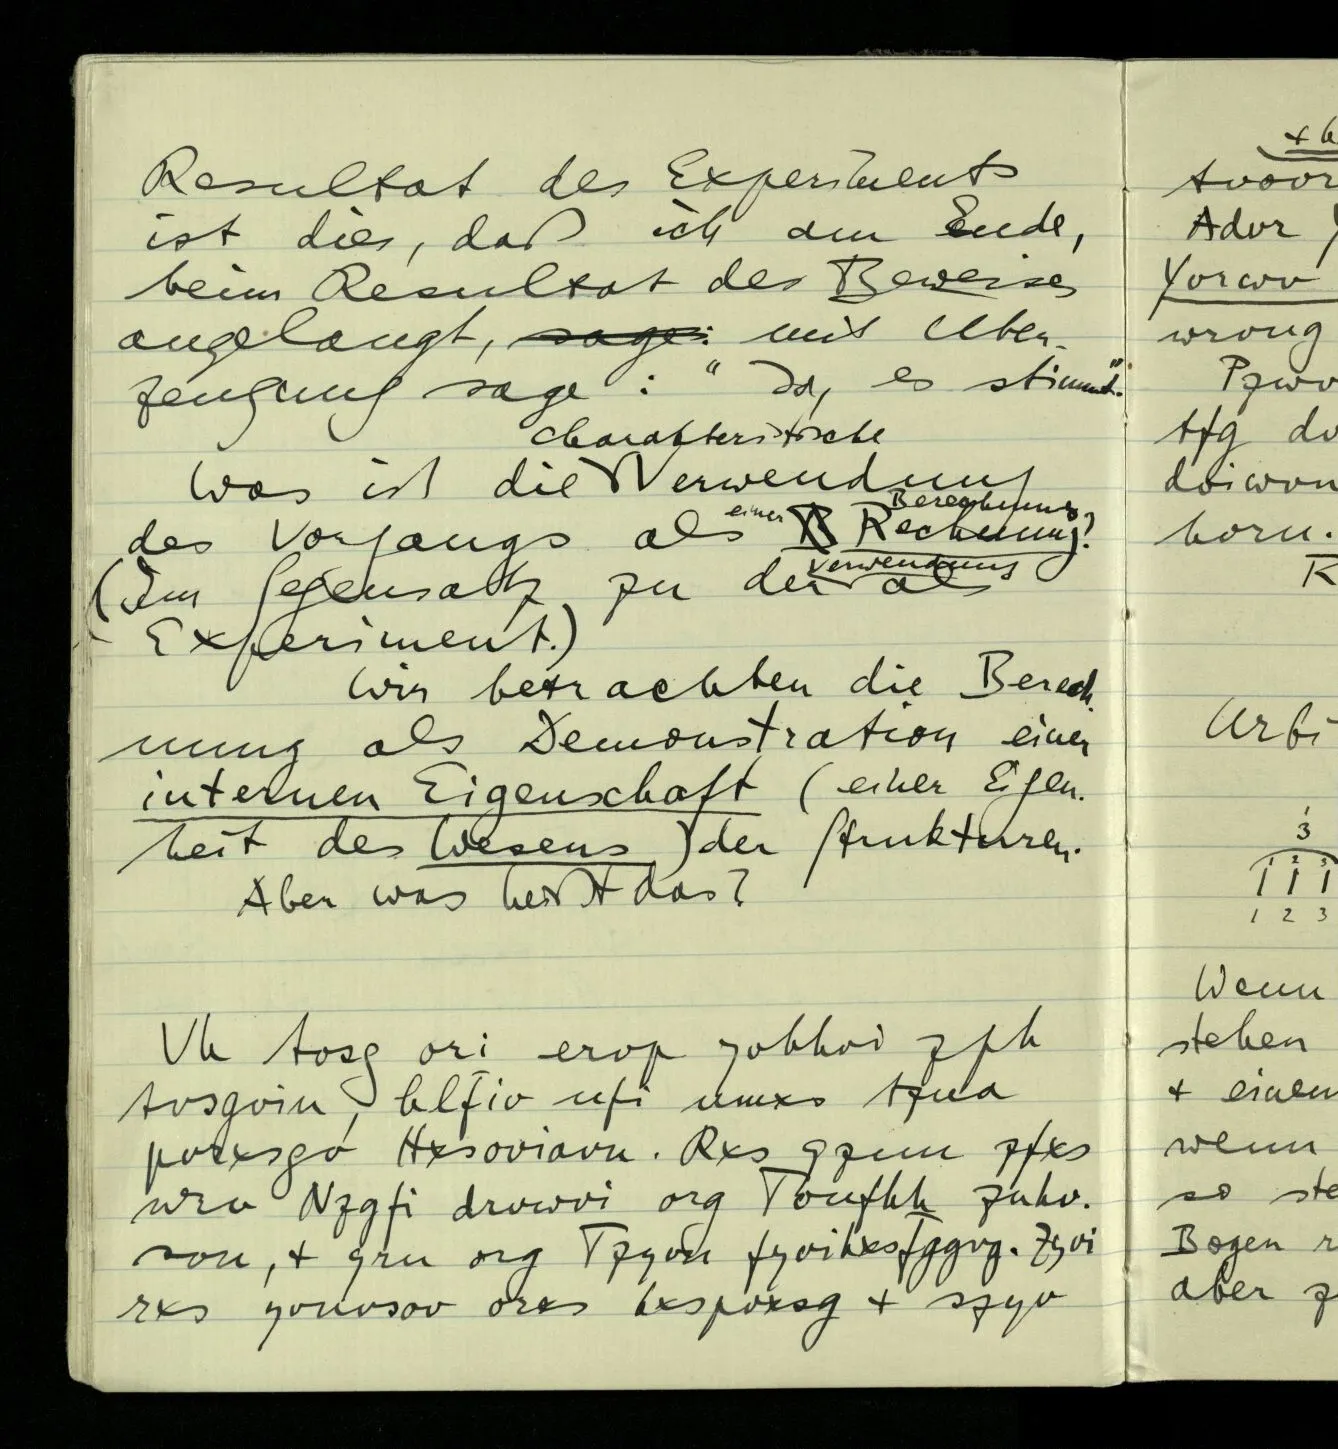 Resultat des Experiments
ist dies, daß ich am Ende,
beim Resultat des Beweises
angelangt, sage: mit Über-
zeugung sage: "Ja, es stimmt".
charakteristische
Was ist die Verwendung
Berechnung?
des Vorgangs als einer Rechnung?
Verwendung
(Im Gegensatz zu der als
Experiment.)
Wir betrachten die Berech-
nung als Demonstration einer
internen Eigenschaft (einer Eigen-
heit des Wesens) der Strukturen.
Aber was heißt das?
Vh tosg ori erop yohhoi zfh
tosgoin, hlfio nfi
Hxsoviavn. Rxs gznm zfxs
wrv Nzgfi drvwvi org Tonfhh zuhv-
son, + grn org Tzyon
rxs yonosov orxs + szyo
+
tvovr
Ador
Yorwv
wrong
Pzwv
tfg do
doiwvn
horn.
R
Urbi
3
1 2 3
1 2 3
Wenn
stehen
+ einen
wenn
so ste
Bogen r
aber z